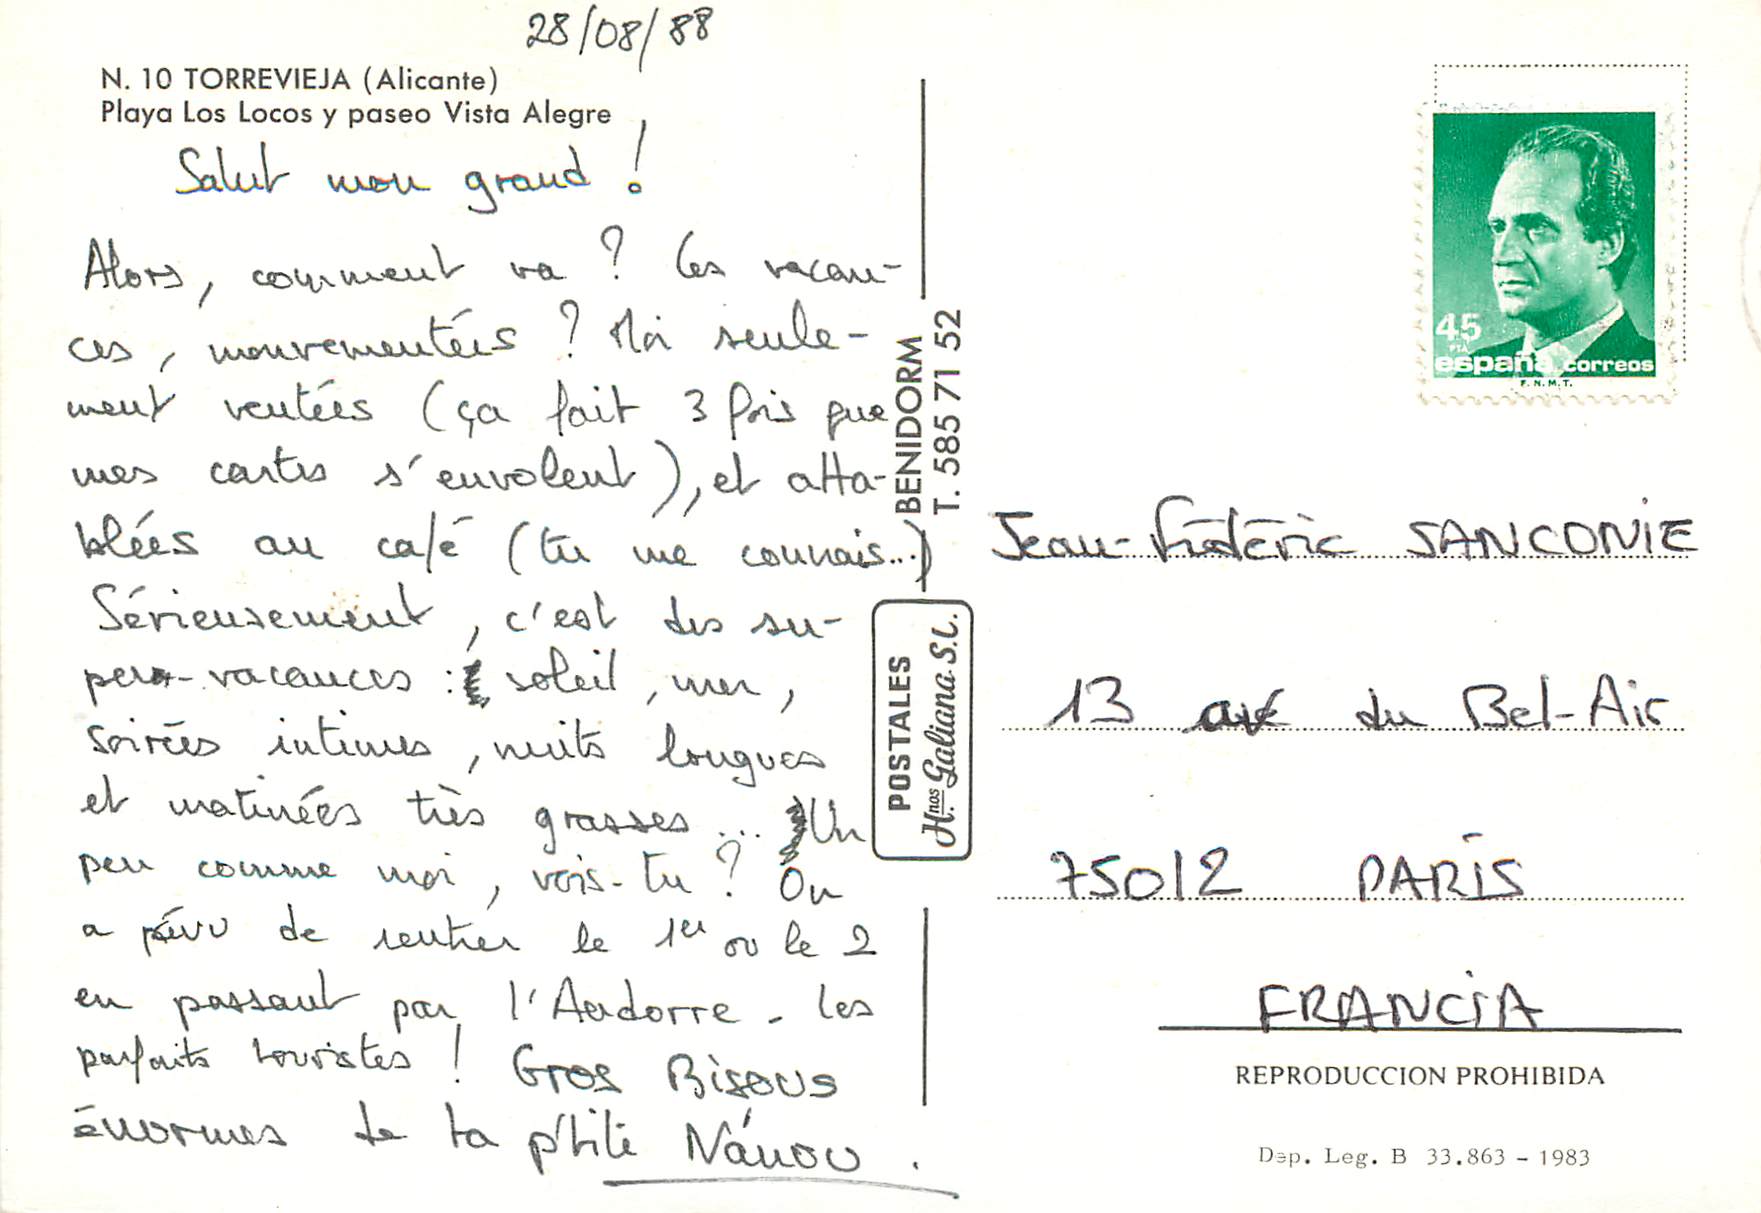 28/08/88
N. 10 TORREVIEJA (Alicante)
Playa Los Locos y paseo Vista Alegre
Salut mon grand !
Alors, comment va ? Les vacan-
ces, mouvementées ? Moi seule-
ment ventées (ça fait 3 fois que
mes cartes s'envolent), et atta-
blées au café (tu me connais...)
Sérieusement, c'est des su-
per-vacances : soleil, mer,
soirées intimes, nuits longues
et matinées très grasses... Un
peu comme moi, vois-tu ? On
a prévu de rentrer le 1er ou le 2
en passant par l'Andorre - les
parfaits touristes ! Gros Bisous
énormes de ta p'tite Nanou.
BENIDORM
T. 585 71 52
POSTALES
Hnos. Galiana S.L.
45
PTA
españa correos
F.N.M.T.
Jean-Frédéric SANCONIE
13 av du Bel-Air
75012 PARIS
FRANCIA
REPRODUCCION PROHIBIDA
Dep. Leg. B 33.863 - 1983